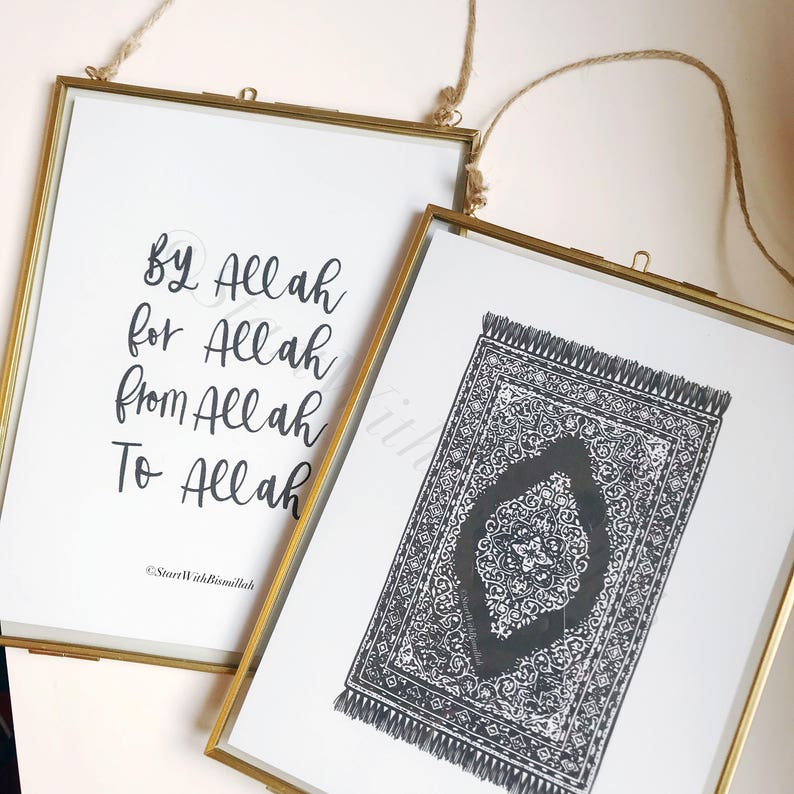 By Allah
for Allah
from Allah
To Allah
©StartWithBismillah
@StartWith
©StartWithBismillah